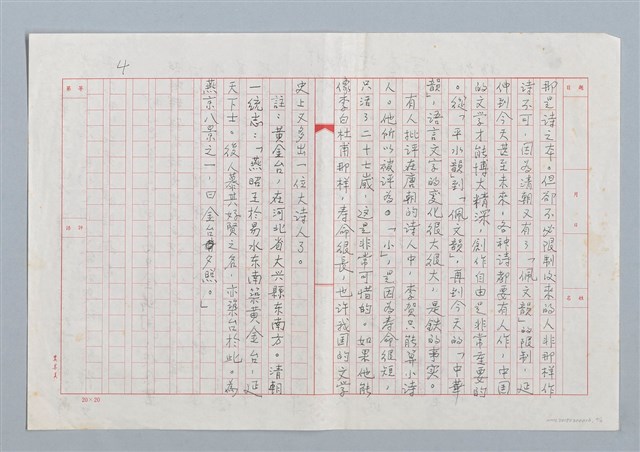 4
那是詩之本。但卻不必限制後來的人非那樣作
詩不可，因為清朝又有了「佩文韻」的限制，延
伸到今天甚至未來，各种詩都要有人作，中国
的文学才能博大精深，創作自由是非常重要的
。從「平水韻」到「佩文韻」，再到今天的「中華
韻」，語言文字的变化很大很大，是鉄的事实。
有人批评在唐朝的诗人中，李贺只能算小詩
人。他所以被评為「小」，是因為寿命很短，
只活了二十七歲，这是非常可惜的。如果他能
像李白杜甫那样，寿命很長，也许我国的文学
史上又多出一位大诗人了。
註：黃金台，在河北省大兴縣东南方。清朝
一統志：「燕昭王於易水东南築黃金台，延
天下士。後人慕其好賢之名，亦築台於此。為
燕京八景之一，曰金台夕照。」
20×20